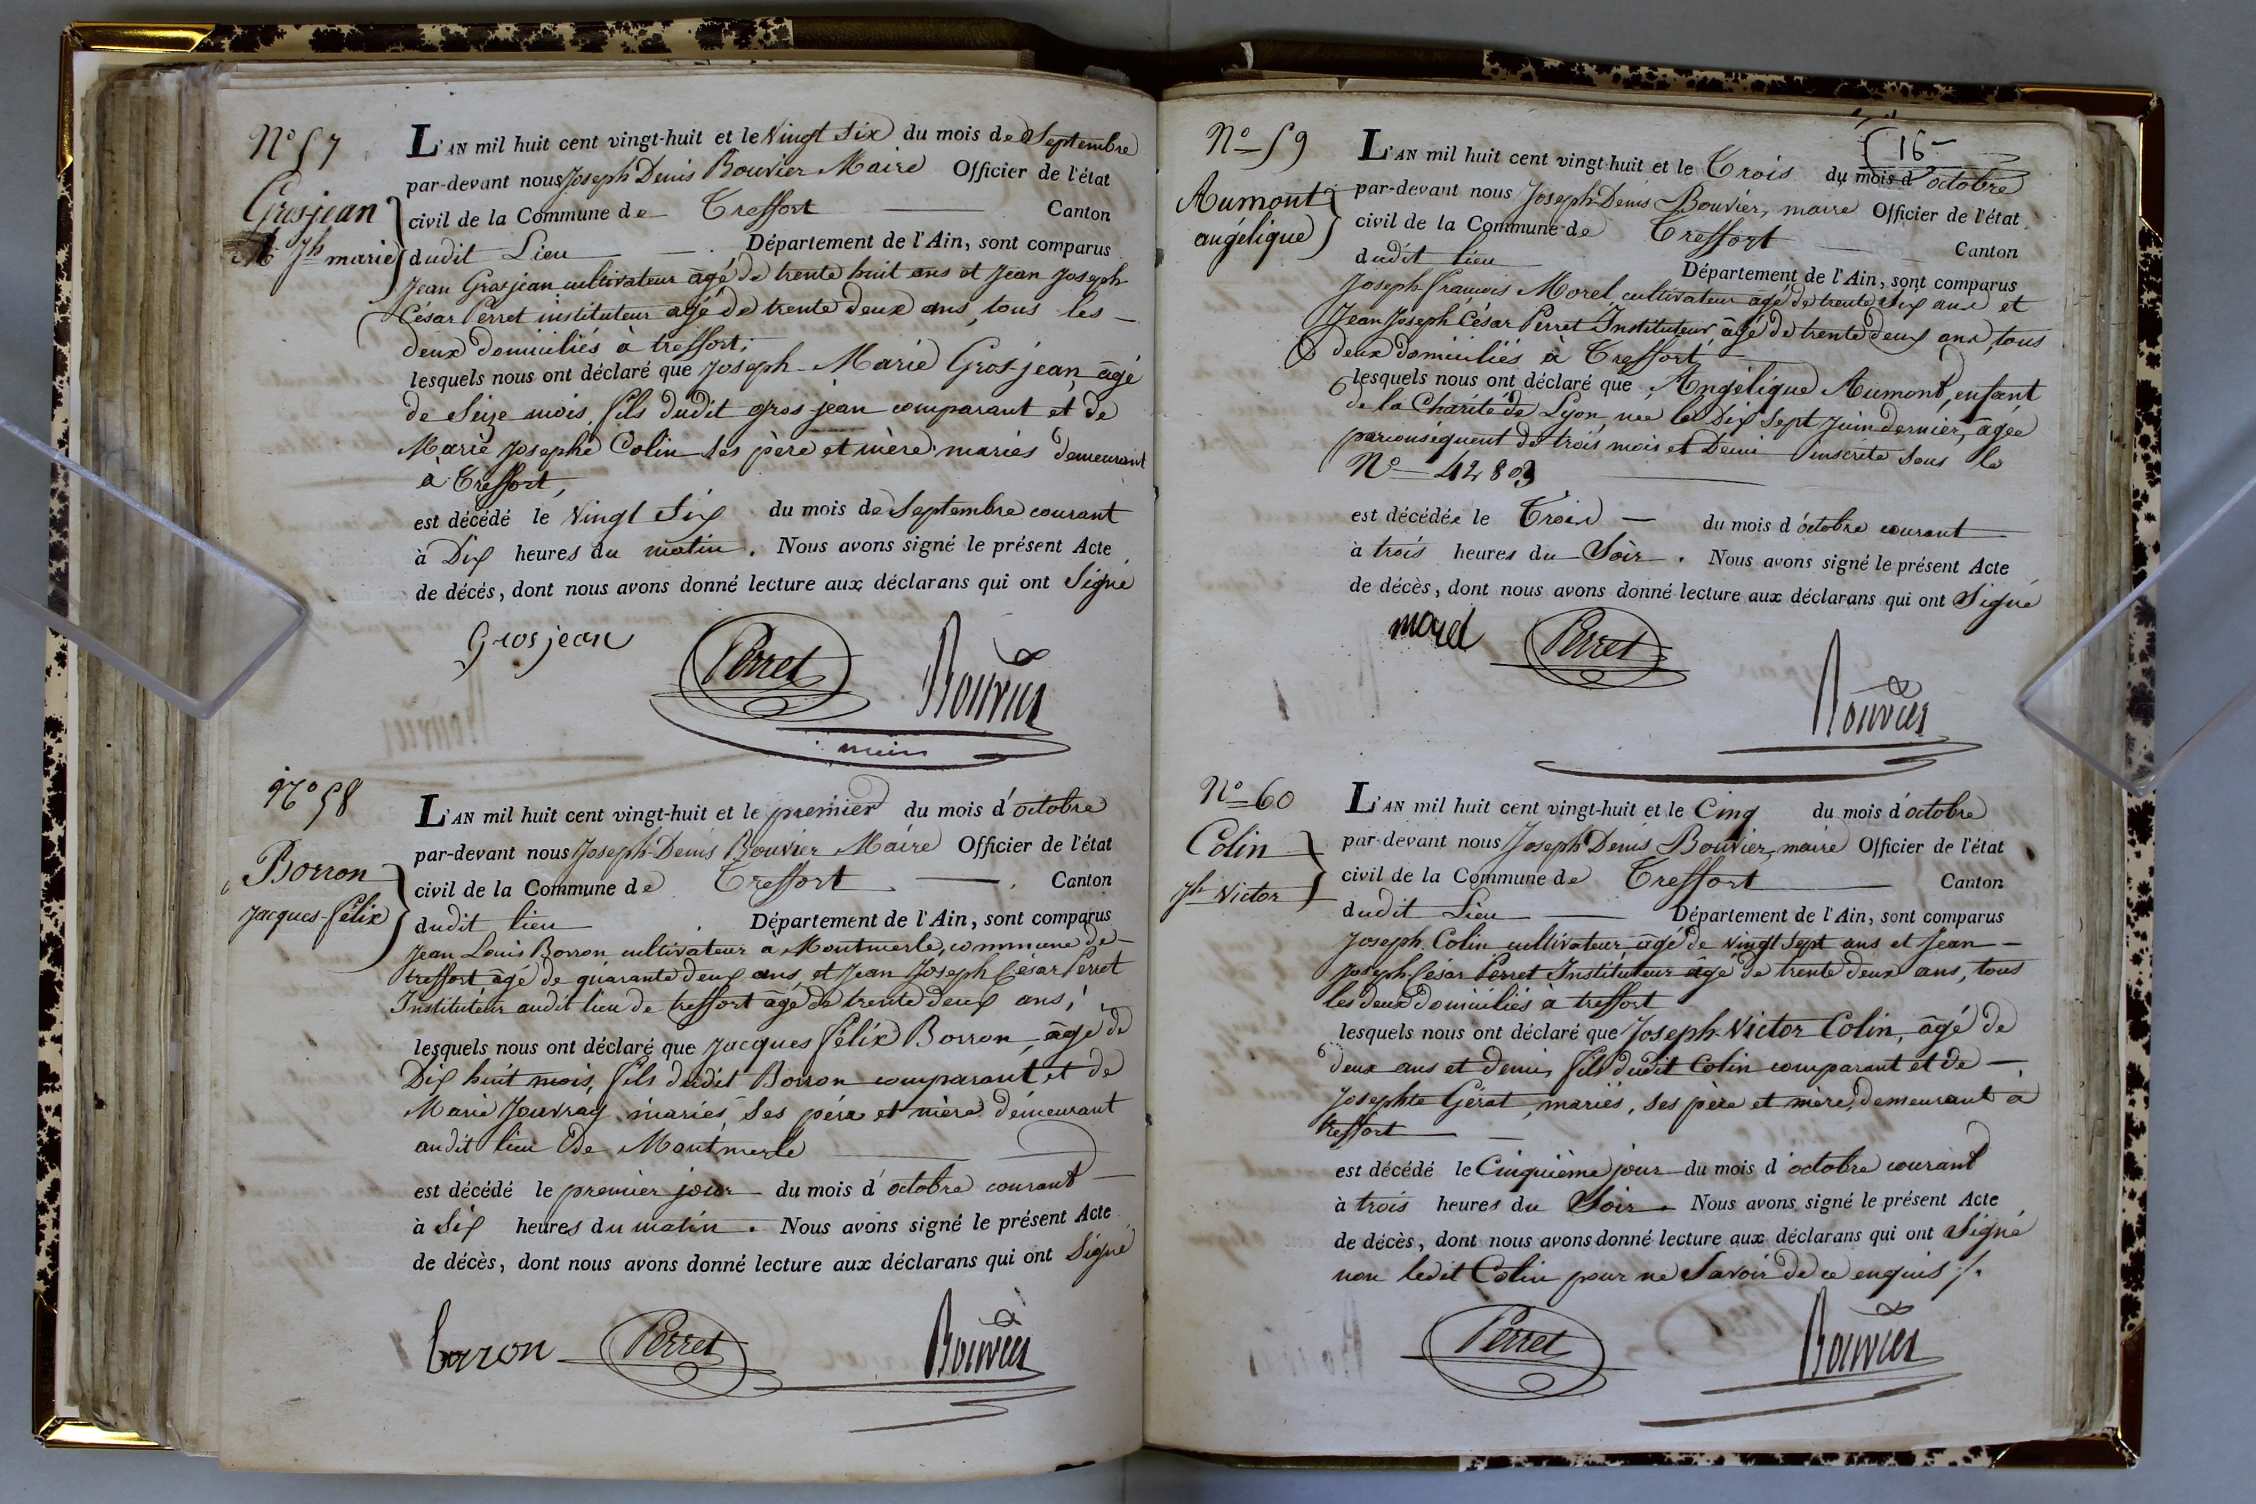 N° 57
Grosjean
Jh marie
L'AN mil huit cent vingt-huit et le Vingt Six du mois de Septembre
par-devant nous Joseph Denis Bouvier Maire Officier de l'état
civil de la Commune de Treffort Canton
dudit Lieu Département de l'Ain, sont comparus
Jean Grosjean cultivateur âgé de trente huit ans et Jean Joseph
César Perret instituteur âgé de trente deux ans, tous les
deux domiciliés à treffort;
lesquels nous ont déclaré que Joseph Marie Grosjean âgé
de Seize mois, fils dudit gros jean comparant et de
Marie Josephe Colin ses père et mère mariés demeurant
à Treffort,
est décédé le Vingt Six du mois de Septembre courant
à Dix heures du matin. Nous avons signé le présent Acte
de décès, dont nous avons donné lecture aux déclarans qui ont Signé
Grosjean Perret Bouvier
N° 58
Borron
Jacques-félix
L'AN mil huit cent vingt-huit et le premier du mois d'octobre
par-devant nous Joseph-Denis Bouvier Maire Officier de l'état
civil de la Commune de Treffort Canton
dudit lieu Département de l'Ain, sont comparus
Jean Louis Borron cultivateur à Montmerle, commune de
treffort âgé de quarante deux ans, et Jean Joseph César Perret
Instituteur audit lieu de treffort âgé de trente deux ans;
lesquels nous ont déclaré que Jacques félix Borron, âgé de
Dix huit mois, fils dudit Borron comparant et de
Marie Jouvray mariés ses père et mère demeurant
audit lieu de Montmerle
est décédé le premier jour du mois d'octobre courant
à Six heures du matin. Nous avons signé le présent Acte
de décès, dont nous avons donné lecture aux déclarans qui ont Signé
borron Perret Bouvier
16
N° 59
Aumont
angélique
L'AN mil huit cent vingt-huit et le Trois du mois d'octobre
par-devant nous Joseph-Denis Bouvier, maire Officier de l'état
civil de la Commune de Treffort Canton
dudit lieu Département de l'Ain, sont comparus
Joseph-François Morel, cultivateur âgé de trente six ans et
Jean Joseph César Perret Instituteur âgé de trente deux ans, tous
deux domiciliés à Treffort,
lesquels nous ont déclaré que Angélique Aumont, enfant
de la Charité de Lyon, née le Dix Sept Juin dernier, âgée
parconséquent de trois mois et Demi inscrite sous le
N° 42803
est décédée le Trois du mois d'octobre courant
à trois heures du Soir. Nous avons signé le présent Acte
de décès, dont nous avons donné lecture aux déclarans qui ont Signé
morel Perret Bouvier
N° 60
Colin
Jh Victor
L'AN mil huit cent vingt-huit et le Cinq du mois d'octobre
par-devant nous Joseph Denis Bouvier, maire Officier de l'état
civil de la Commune de Treffort Canton
dudit Lieu Département de l'Ain, sont comparus
Joseph Colin cultivateur âgé de vingt Sept ans et Jean
Joseph-César Perret Instituteur âgé de trente deux ans, tous
les deux domiciliés à treffort
lesquels nous ont déclaré que Joseph-Victor Colin, âgé de
deux ans et demi, fils dudit Colin comparant et de
Josephte Gérat, mariés, ses père et mère, demeurant à
treffort
est décédé le Cinquième jour du mois d'octobre courant
à trois heures du Soir. Nous avons signé le présent Acte
de décès, dont nous avons donné lecture aux déclarans qui ont Signé
non ledit Colin pour ne Savoir de ce enquis ./.
Perret Bouvier